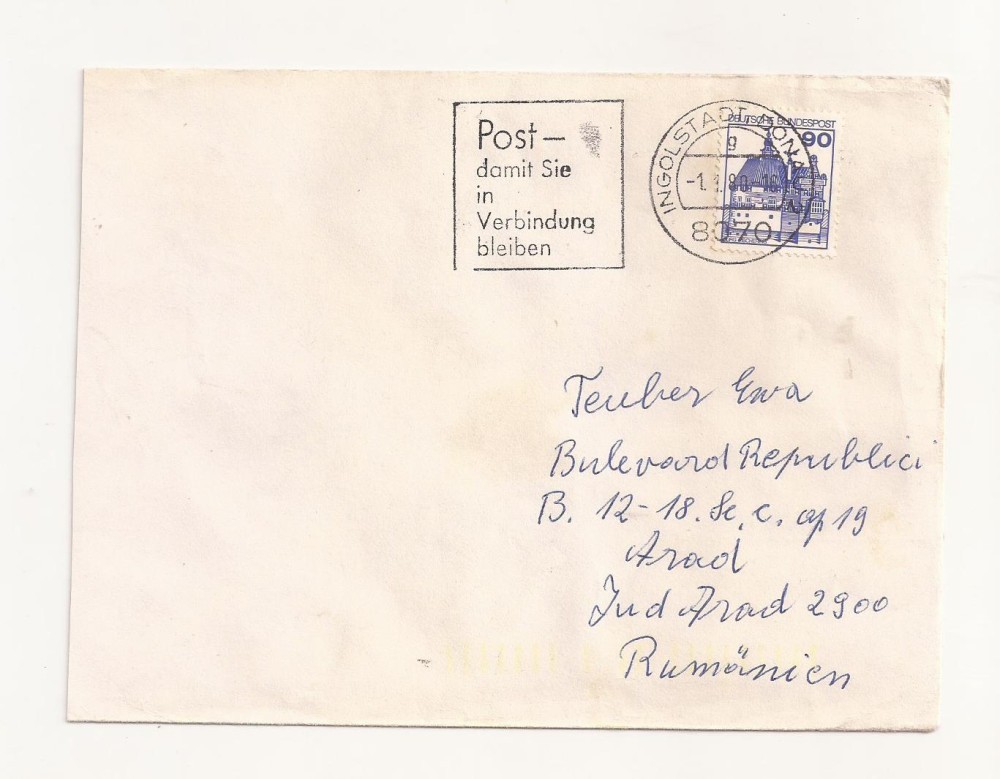 Post—
damit Sie
in
Verbindung
bleiben
INGOLSTADT, DONAU
g
-1.1.80-16
8070
DEUTSCHE BUNDESPOST
90
Teuber Ewa
Bulevard Republici
B. 12-18. Sc. C. ap 19
Arad
Jud Arad 2900
Rumänien